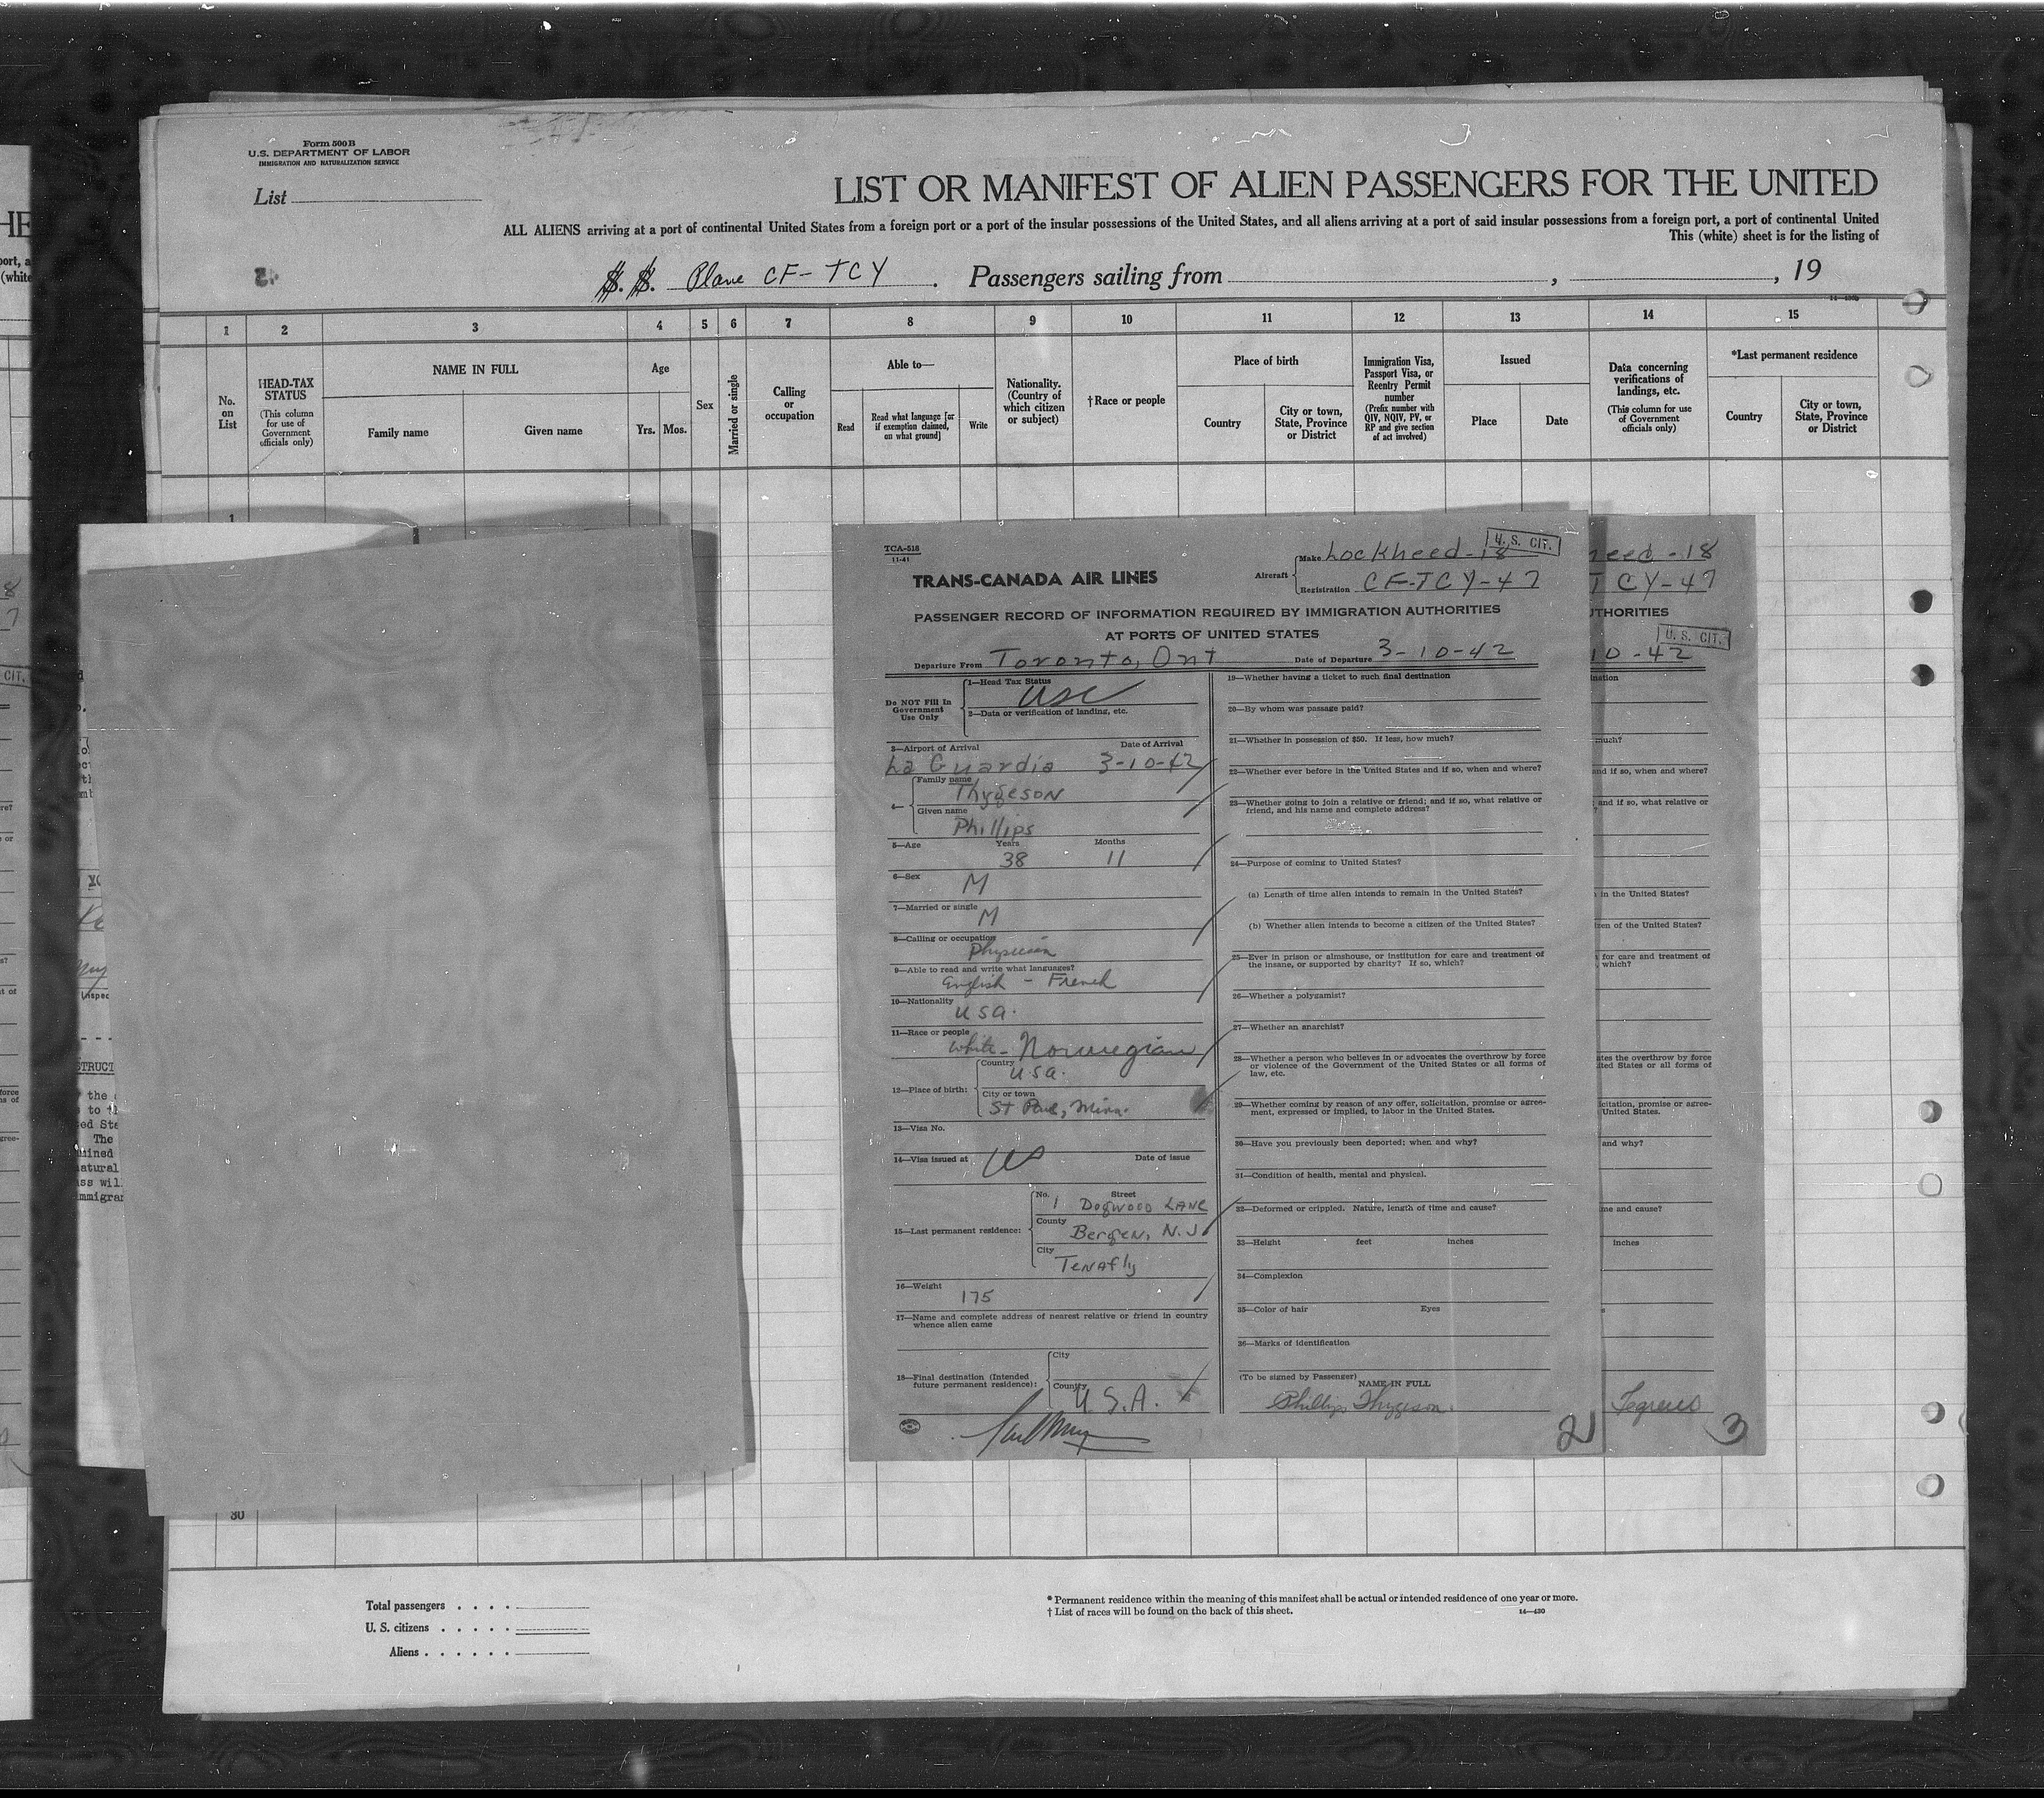 Form 500B
U.S. DEPARTMENT OF LABOR
IMMIGRATION AND NATURALIZATION SERVICE
List
LIST OR MANIFEST OF ALIEN PASSENGERS FOR THE UNITED
ALL ALIENS arriving at a port of continental United States from a foreign port or a port of the insular possessions of the United States, and all aliens arriving at a port of said insular possessions from a foreign port, a port of continental United
This (white) sheet is for the listing of
S. S. Plane CF-TCY. Passengers sailing from , , 19
1 2 3 4 5 6 7 8 9 10 11 12 13 14 15
No. on List
HEAD-TAX STATUS
(This column for use of Government officials only)
NAME IN FULL
Family name Given name
Age
Yrs. Mos.
Sex
Married or single
Calling or occupation
Able to—
Read
Read what language [or if exemption claimed, on what ground]
Write
Nationality. (Country of which citizen or subject)
†Race or people
Place of birth
Country
City or town, State, Province or District
Immigration Visa, Passport Visa, or Reentry Permit number
(Prefix number with QIV, NQIV, PV, or RP and give section of act involved)
Issued
Place Date
Data concerning verifications of landings, etc.
(This column for use of Government officials only)
*Last permanent residence
Country
City or town, State, Province or District
1
TCA-518
11-41
TRANS-CANADA AIR LINES
Aircraft
Make Lockheed-18
U. S. CIT.
Registration CF-TCY-47
PASSENGER RECORD OF INFORMATION REQUIRED BY IMMIGRATION AUTHORITIES
AT PORTS OF UNITED STATES
Departure From Toronto, Ont Date of Departure 3-10-42
Do NOT Fill In Government Use Only
1—Head Tax Status
USC
2—Data or verification of landing, etc.
3—Airport of Arrival Date of Arrival
La Guardia 3-10-42
4— Family name
Thygeson
Given name
Phillips
5—Age Years Months
38 11
6—Sex
M
7—Married or single
M
8—Calling or occupation
Physician
9—Able to read and write what languages?
English - French
10—Nationality
USA.
11—Race or people
White - Norwegian
12—Place of birth:
Country
USA.
City or town
St Paul, Minn.
13—Visa No.
14—Visa issued at Date of issue
15—Last permanent residence:
No. Street
1 Dogwood Lane
County
Bergen, N.J
City
Tenafly
16—Weight
175
17—Name and complete address of nearest relative or friend in country whence alien came
18—Final destination (Intended future permanent residence):
City
County
U.S.A.
19—Whether having a ticket to such final destination
20—By whom was passage paid?
21—Whether in possession of $50. If less, how much?
22—Whether ever before in the United States and if so, when and where?
23—Whether going to join a relative or friend; and if so, what relative or friend, and his name and complete address?
24—Purpose of coming to United States?
(a) Length of time alien intends to remain in the United States?
(b) Whether alien intends to become a citizen of the United States?
25—Ever in prison or almshouse, or institution for care and treatment of the insane, or supported by charity? If so, which?
26—Whether a polygamist?
27—Whether an anarchist?
28—Whether a person who believes in or advocates the overthrow by force or violence of the Government of the United States or all forms of law, etc.
29—Whether coming by reason of any offer, solicitation, promise or agreement, expressed or implied, to labor in the United States.
30—Have you previously been deported; when and why?
31—Condition of health, mental and physical.
32—Deformed or crippled. Nature, length of time and cause?
33—Height feet inches
34—Complexion
35—Color of hair Eyes
36—Marks of identification
(To be signed by Passenger) NAME IN FULL
Phillips Thygeson
2
eed-18
TCY-47
THORITIES
U. S. CIT.
10-42
3
30
Total passengers
U. S. citizens
Aliens
* Permanent residence within the meaning of this manifest shall be actual or intended residence of one year or more.
† List of races will be found on the back of this sheet.
14—430